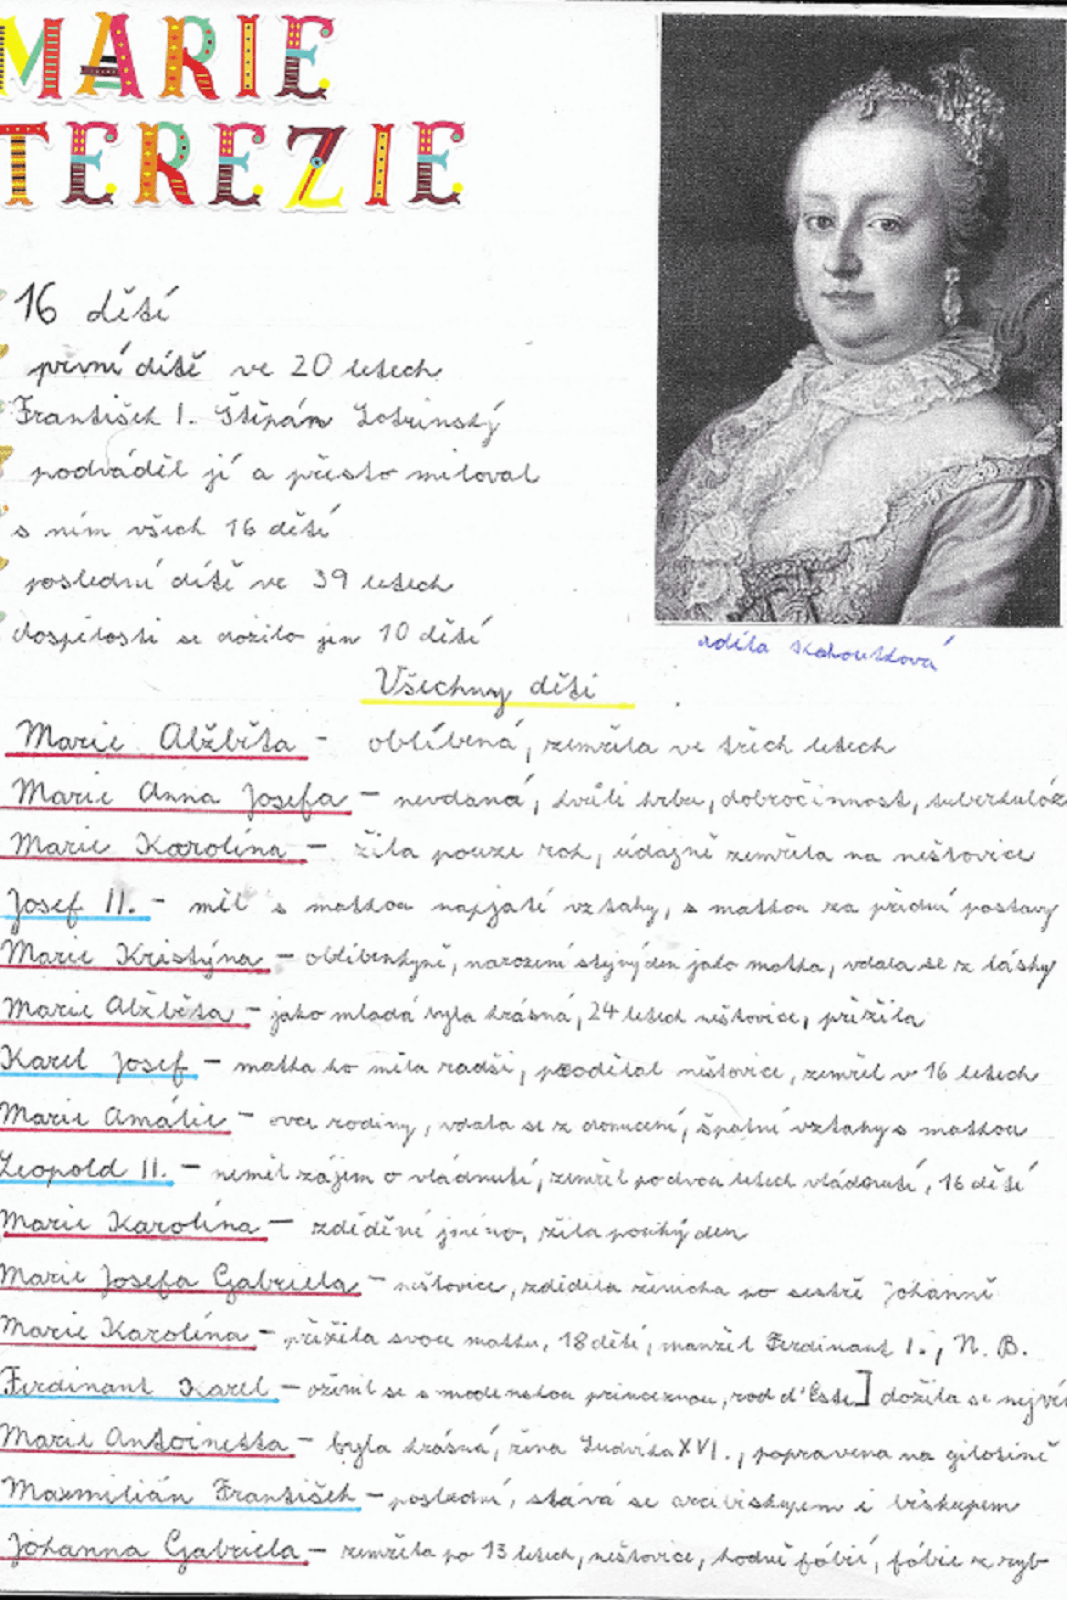 MARIE
TEREZIE
16 dětí
první dítě ve 20 letech
František I. Štěpán Lotrinský
podváděl jí a přesto miloval
s ním všech 16 dětí
poslední dítě ve 39 letech
dospělosti se dožilo jen 10 dětí
Adéla Kohoutková
Všechny děti
Marie Alžběta - oblíbená, zemřela ve třech letech
Marie Anna Josefa - nevdaná, kvůli hrbu, dobročinnost, tuberkulóz
Marie Karolína - žila pouze rok, údajně zemřela na neštovice
Josef II. - měl s matkou napjaté vztahy, s matkou za přední postavy
Marie Kristýna - oblíbenkyně, narození stejný den jako matka, vdala se z lásky
Marie Alžběta - jako mladá byla krásná, 24 letech neštovice, přežila
Karel Josef - matka ho měla radši, prodělal neštovice, zemřel v 16 letech
Marie Amálie - ovce rodiny, vdala se z donucení, špatné vztahy s matkou
Leopold II. - neměl zájem o vládnutí, zemřel po dvou letech vládnutí, 16 dětí
Marie Karolína - zděděné jméno, žila pouhý den
Marie Josefa Gabriela - neštovice, zdědila ženicha po sestře Johanně
Marie Karolína - přežila svou matku, 18 dětí, manžel Ferdinant I., N. B.
Ferdinant Karel - oženil se s modenskou princeznou, rod d'Este] dožila se nejvé
Marie Antoinetta - byla krásná, žena Ludvíka XVI., popravena na gilotině
Maxmilián František - poslední, stává se arcibiskupem i biskupem
Johanna Gabriela - zemřela po 13 letech, neštovice, hodně fóbií, fóbie z ryb